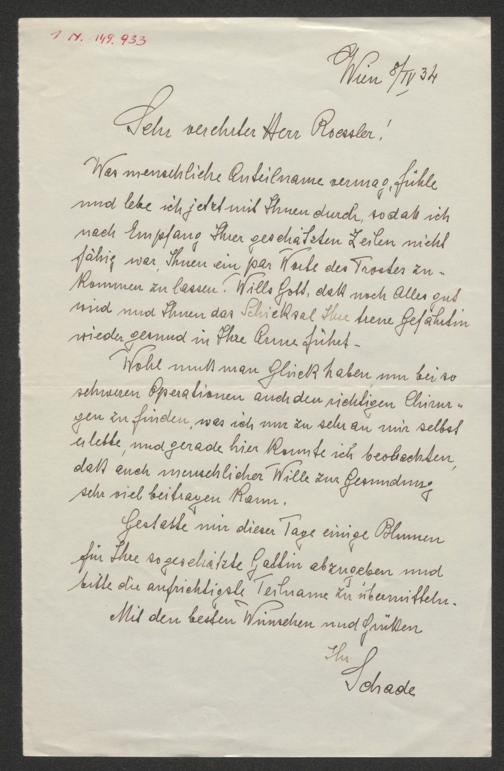 I N. 149.933
Wien 8/IV 34
Sehr verehrter Herr Roessler!
Was menschliche Anteilname vermag, fühle
und lebe ich jetzt mit Ihnen durch, sodaß ich
nach Empfang Ihrer geschätzten Zeilen nicht
fähig war, Ihnen ein par Worte des Trostes zu-
kommen zu lassen. Wills Gott, daß noch Alles gut
wird und Ihnen das Schicksal Ihre treue Gefährtin
wieder gesund in Ihre Arme führt.-
Wohl muß man Glück haben, um bei so
schweren Operationen auch den richtigen Chirur-
gen zu finden, was ich nur zu sehr an mir selbst
erlebte, und gerade hier konnte ich beobachten,
daß auch menschlicher Wille zur Gesundung
sehr viel beitragen kann.
Gestatte mir dieser Tage einige Blumen
für Ihre so geschätzte Gattin abzugeben und
bitte die aufrichtigste Teilname zu übermitteln.
Mit den besten Wünschen und Grüßen
Ihr
Schade